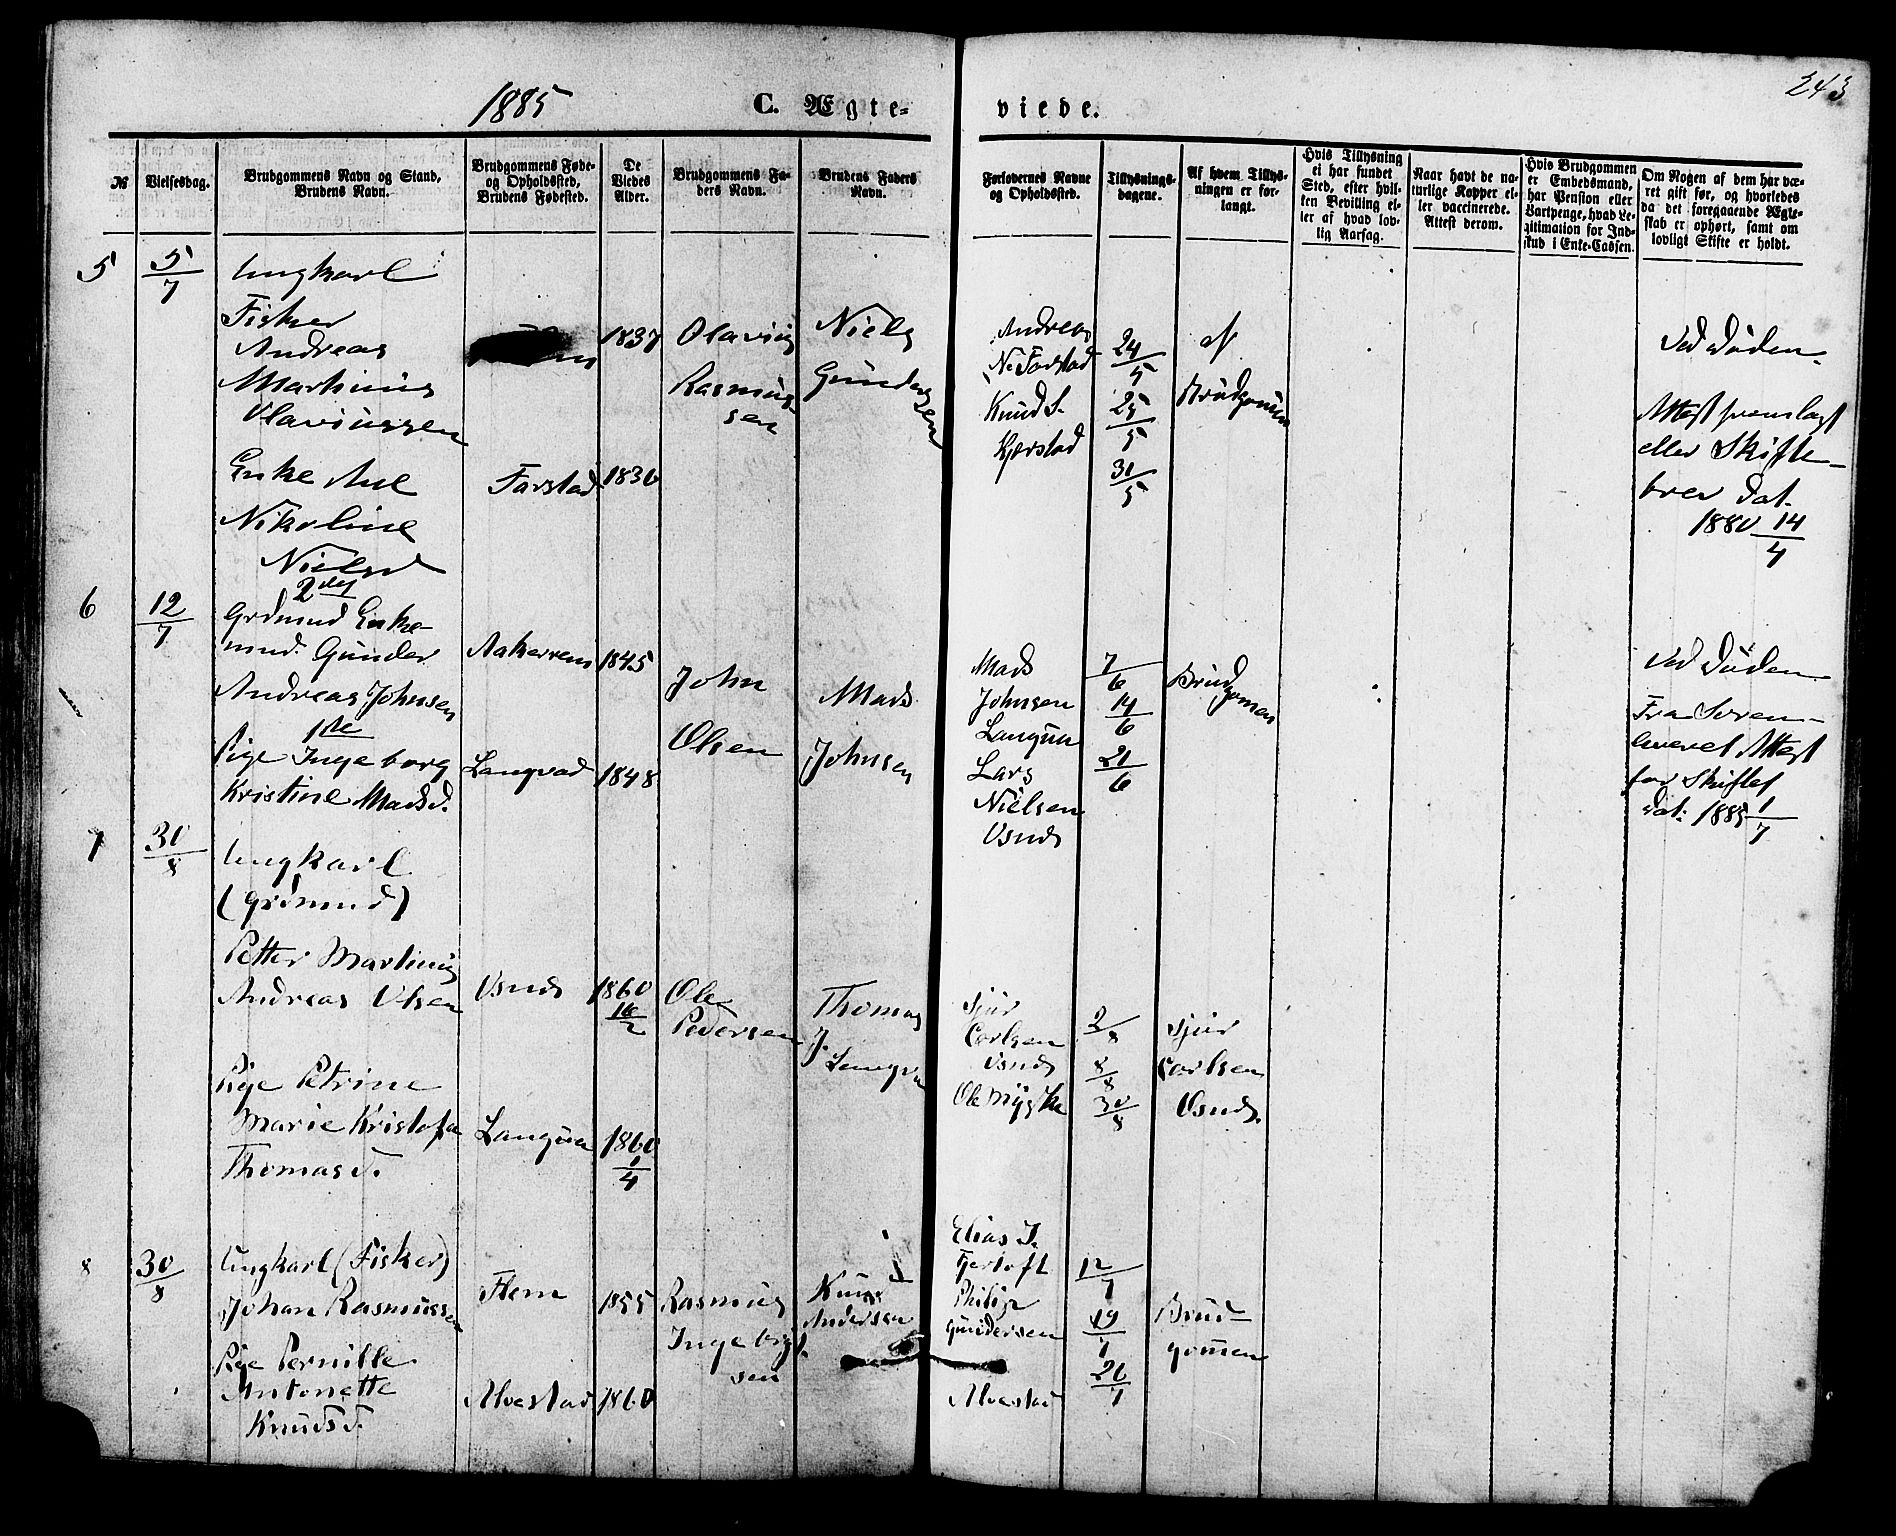 243
1885
C. Ægte- viede.
№
Vielsesdag.
Brudgommens Navn og Stand,
Brudens Navn.
Brudgommens Føde-
og Opholdssted,
Brudens Fødested.
De
Viedes
Alder.
Brudgommens Fa-
ders Navn.
Brudens Faders
Navn.
Forlovernes Navne
og Opholdssted.
Tillysnings-
dagene.
Af hvem Tillys-
ningen er for-
langt.
Hvis Tillysning
ei har fundet
Sted, efter hvil-
ken Bevilling el-
ler af hvad lov-
lig Aarsag.
Naar havt de na-
turlige Kopper el-
ler vaccinerede.
Attest derom.
Hvis Brudgommen
er Embedsmand,
har Pension eller
Vartpenge, hvad Le-
gitimation for Ind-
skud i Enke-Cassen.
Om Nogen af dem har væ-
ret gift før, og hvorledes
da det foregaaende Ægte-
skab er ophørt, samt om
lovligt Skifte er holdt.
5
5/7
Ungkarl
Fisker
Andreas
Martinius
Olaviussen
1837
Olavius
Rasmus-
sen
Niels
Gundersen
Andreas
N. Farstad
Knud S.
Kjerstad
24/5
25/5
31/5
af
Brudgommen
Ved Døden
Attest fremlagt
eller Skifte-
brev dat.
1880 14/4
Enke Ane
Nikoline
Nielsd
Farstad
1836
6
12/7
2den
Grdmnd Enke-
mnd. Gunder
Andreas Johnsen
Aakerrem
1845
John
Olsen
Mads
Johnsen
Mads
Johnsen
Langva
Lars
Nielsen
Usnds
7/6
14/6
21/6
Brudgomen
Ved Døden
Fra Soren-
hvervet Attest
for Skiftet
dat. 1885 1/7
1ste
Pige Ingeborg
Kristine Madsd.
Langvad
1848
7
30/8
Ungkarl
(Grdmnd)
Petter Martinius
Andreas Olsen
Usnds
1860
16/2
Ole
Pedersen
Thomas
J.
Langva
Sjur
Carlsen
Usnds
Ole Myske
2/8
8/8
30/8
Sjur
Carlsen
Usnds.
Pige Petrine
Marie Kristofa
Thomasd.
Langva
1860
1/4
8
30/8
Ungkarl (Fisker)
Johan Rasmussen
Flem
1855
Rasmus
Ingebrigt-
sen
Knud
Andersen
Elias J.
Gjertoft
Philip
Gundersen
Alvestad
12/7
19/7
26/7
Brud-
gommen
Pige Pernille
Antonette
Knudsd.
Alvestad
1860